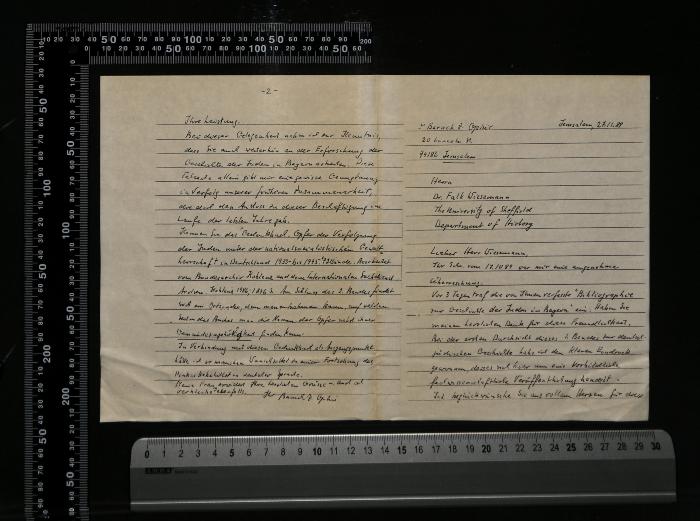 Baruch Z. Ophir
Jerusalem, 27.11.89
20 Lincoln St.
94186 Jerusalem
Herrn
Dr. Falk Wiesemann
The University of Sheffield
Department of History
Lieber Herr Wiesemann,
Ihr Schr. vom 12.10.89 war mir eine angenehme
Überraschung.
Vor 3 Tagen traf die von Ihnen verfasste "Bibliographie
zur Geschichte der Juden in Bayern" ein. Haben Sie
meinen herzlichen Dank für diese Freundlichkeit.
Bei der ersten Durchsicht dieses Bandes zur deutsch
jüdischen Geschichte habe ich den klaren Eindruck
gewonnen, dass es sich hier um eine vorbildliche
fachwissenschaftliche Veröffentlichung handelt.
Ich beglückwünsche Sie aus vollem Herzen für diese
-2-
Ihre Leistung.
Bei dieser Gelegenheit nehm ich zur Kenntnis,
dass Sie auch weiterhin an der Erforschung der
Geschichte der Juden in Bayern arbeiten. Diese
Tatsache allein gibt mir eine gewisse Genugtuung
in Verfolg unserer früheren Zusammenarbeit,
die den Anstoss zu dieser Beschäftigung im
Laufe der letzten Jahre gab.
Kennen Sie das "Gedenkbuch. Opfer der Verfolgung
der Juden unter der nationalsozialistischen Gewalt-
herrschaft in Deutschland 1933-1945" 2 Bände. Bearbeitet
vom Bundesarchiv Koblenz und dem Internationalen Suchdienst
Arolsen. Koblenz 1986. Am Schluss des 2. Bandes findet
sich ein Ortsindex, dem man entnehmen kann, auf welchen
Seiten des Buches man die Namen der Opfer und ihrer
Gemeindezugehörigkeit finden kann.
In Verbindung mit diesem Gedenkbuch als Ausgangspunkt
hätte ich so manchen Vorschlag zu einer Fortsetzung des
Pinkas Hakehillot in deutscher Sprache.
Meine Frau erwidert Ihre herzlichen Grüsse und ich
verbleibe ebenfalls.
Ihr Baruch Z. Ophir